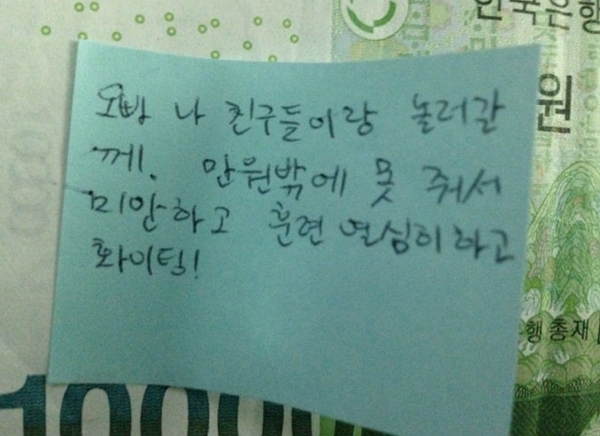 한국은행
원
오빠 나 친구들이랑 놀러갈
께. 만원밖에 못 줘서
미안하고 훈련 열심히 하고
화이팅!
행 총재
10000